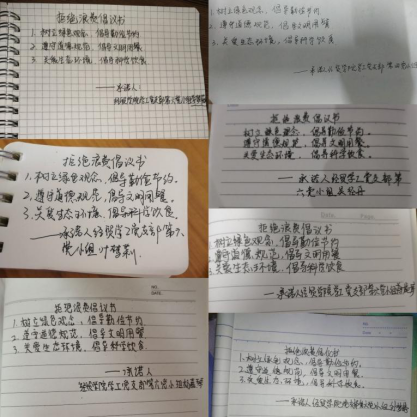 拒绝浪费倡议书
1. 树立绿色观念，倡导勤俭节约
2. 遵守道德规范，倡导文明用餐
3. 关爱生态环境，倡导科学饮食
——承诺人
1. 树立绿色观念，倡导勤俭节约
2. 遵守道德规范，倡导文明用餐
3. 关爱生态环境，倡导科学饮食
——承诺人
拒绝浪费倡议书
树立绿色观念，倡导勤俭节约。
遵守道德规范，倡导文明用餐。
关爱生态环境，倡导科学饮食。
——承诺人 经贸学工党支部第
六党小组
拒绝浪费倡议书
1. 树立绿色观念，倡导勤俭节约。
2. 遵守道德规范，倡导文明用餐。
3. 关爱生态环境，倡导科学饮食。
——承诺人经贸学工党支部第六
党小组叶
拒绝浪费倡议书
1 树立绿色观念，倡导勤俭节约
2 遵守道德规范，倡导文明用餐
3 关爱生态环境，倡导科学饮食
——承诺人
拒绝浪费倡议书
1 树立绿色观念，倡导勤俭节约
2 遵守道德规范，倡导文明用餐
3 关爱生态环境，倡导科学饮食
——承诺人
拒绝浪费倡议书
1. 树立绿色观念，倡导勤俭节约
2. 遵守道德规范，倡导文明用餐
3. 关爱生态环境，倡导科学饮食
——承诺人